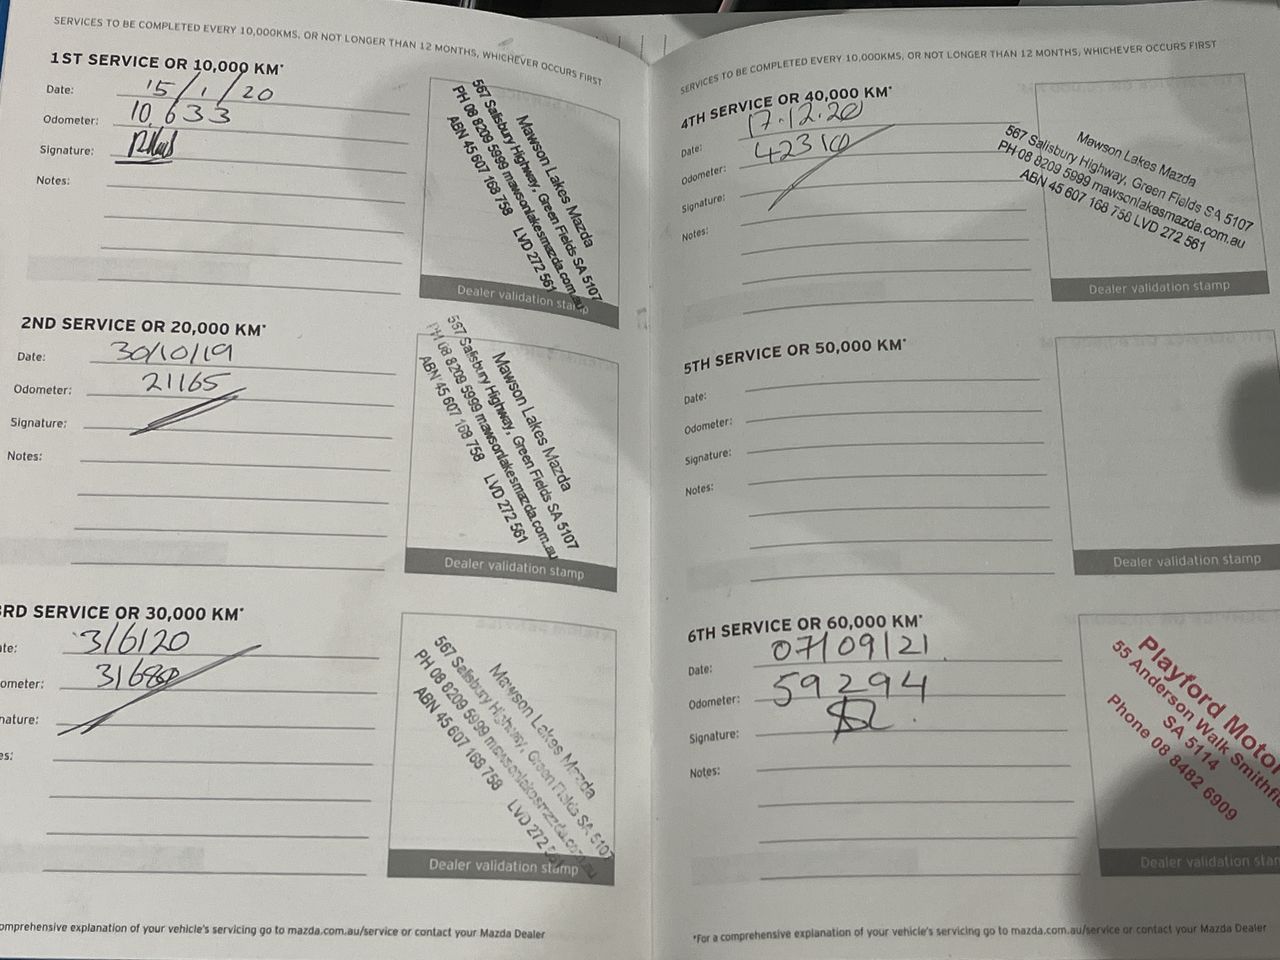 SERVICES TO BE COMPLETED EVERY 10,000KMS, OR NOT LONGER THAN 12 MONTHS, WHICHEVER OCCURS FIRST
1ST SERVICE OR 10,000 KM*
Date: 15/1/20
Odometer: 10,633
Signature:
Notes:
Mawson Lakes Mazda
567 Salisbury Highway, Green Fields SA 5107
PH 08 8209 5999 mawsonlakesmazda.com.au
ABN 45 607 168 758 LVD 272 561
Dealer validation stamp
2ND SERVICE OR 20,000 KM*
Date: 30/10/19
Odometer: 21165
Signature:
Notes:
Mawson Lakes Mazda
567 Salisbury Highway, Green Fields SA 5107
PH 08 8209 5999 mawsonlakesmazda.com.au
ABN 45 607 168 758 LVD 272 561
Dealer validation stamp
3RD SERVICE OR 30,000 KM*
ate: 3/6/20
ometer:
nature:
es:
Mawson Lakes Mazda
567 Salisbury Highway, Green Fields SA 5107
PH 08 8209 5999 mawsonlakesmazda.com.au
ABN 45 607 168 758 LVD 272
Dealer validation stamp
omprehensive explanation of your vehicle's servicing go to mazda.com.au/service or contact your Mazda Dealer
SERVICES TO BE COMPLETED EVERY 10,000KMS, OR NOT LONGER THAN 12 MONTHS, WHICHEVER OCCURS FIRST
4TH SERVICE OR 40,000 KM*
Date: 17.12.20
Odometer: 42310
Signature:
Notes:
Mawson Lakes Mazda
567 Salisbury Highway, Green Fields SA 5107
PH 08 8209 5999 mawsonlakesmazda.com.au
ABN 45 607 168 758 LVD 272 561
Dealer validation stamp
5TH SERVICE OR 50,000 KM*
Date:
Odometer:
Signature:
Notes:
Dealer validation stamp
6TH SERVICE OR 60,000 KM*
Date: 07/09/21
Odometer: 59294
Signature:
Notes:
Playford Motor
55 Anderson Walk Smithfi
SA 5114
Phone 08 8482 6909
Dealer validation stam
*For a comprehensive explanation of your vehicle's servicing go to mazda.com.au/service or contact your Mazda Dealer